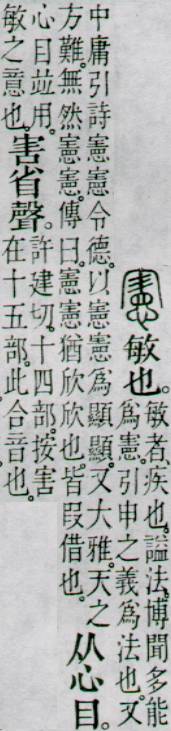 憲
敏也。
敏者、疾也。謚法。博聞多能
爲憲。引申之義爲法也。又
中庸引詩憲憲令德。以憲憲爲顯顯。又大雅。天之
方難。無然憲憲。傳曰。憲憲猶欣欣也。皆叚借也。
从心目。
心目竝用。
敏之意也。
害省聲。
許建切。十四部。按害
在十五部。此合音也。